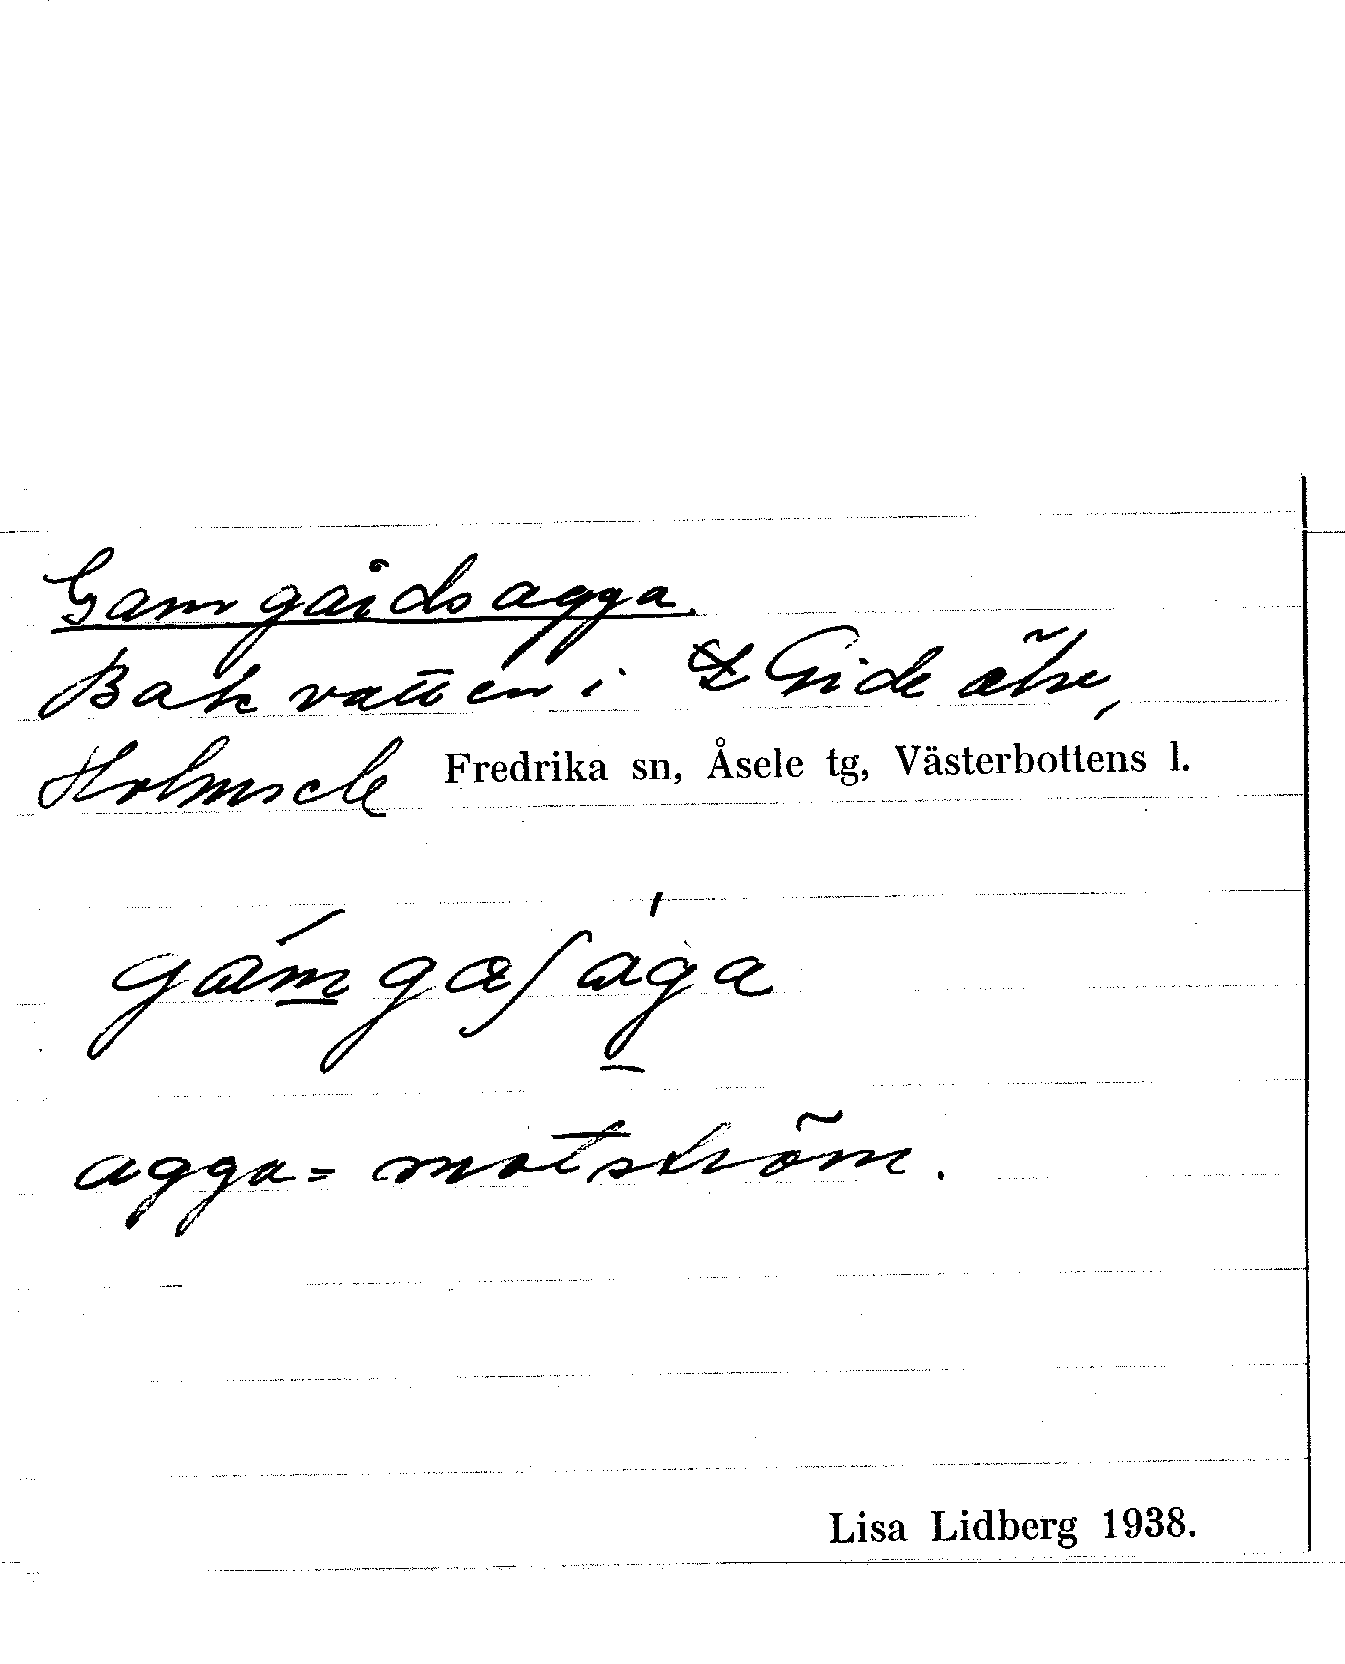 Gamgårdsagga.
Bakvatten i Gide älv,
Holmsele Fredrika sn, Åsele tg, Västerbottens l.
agga = motström.
Lisa Lidberg 1938.